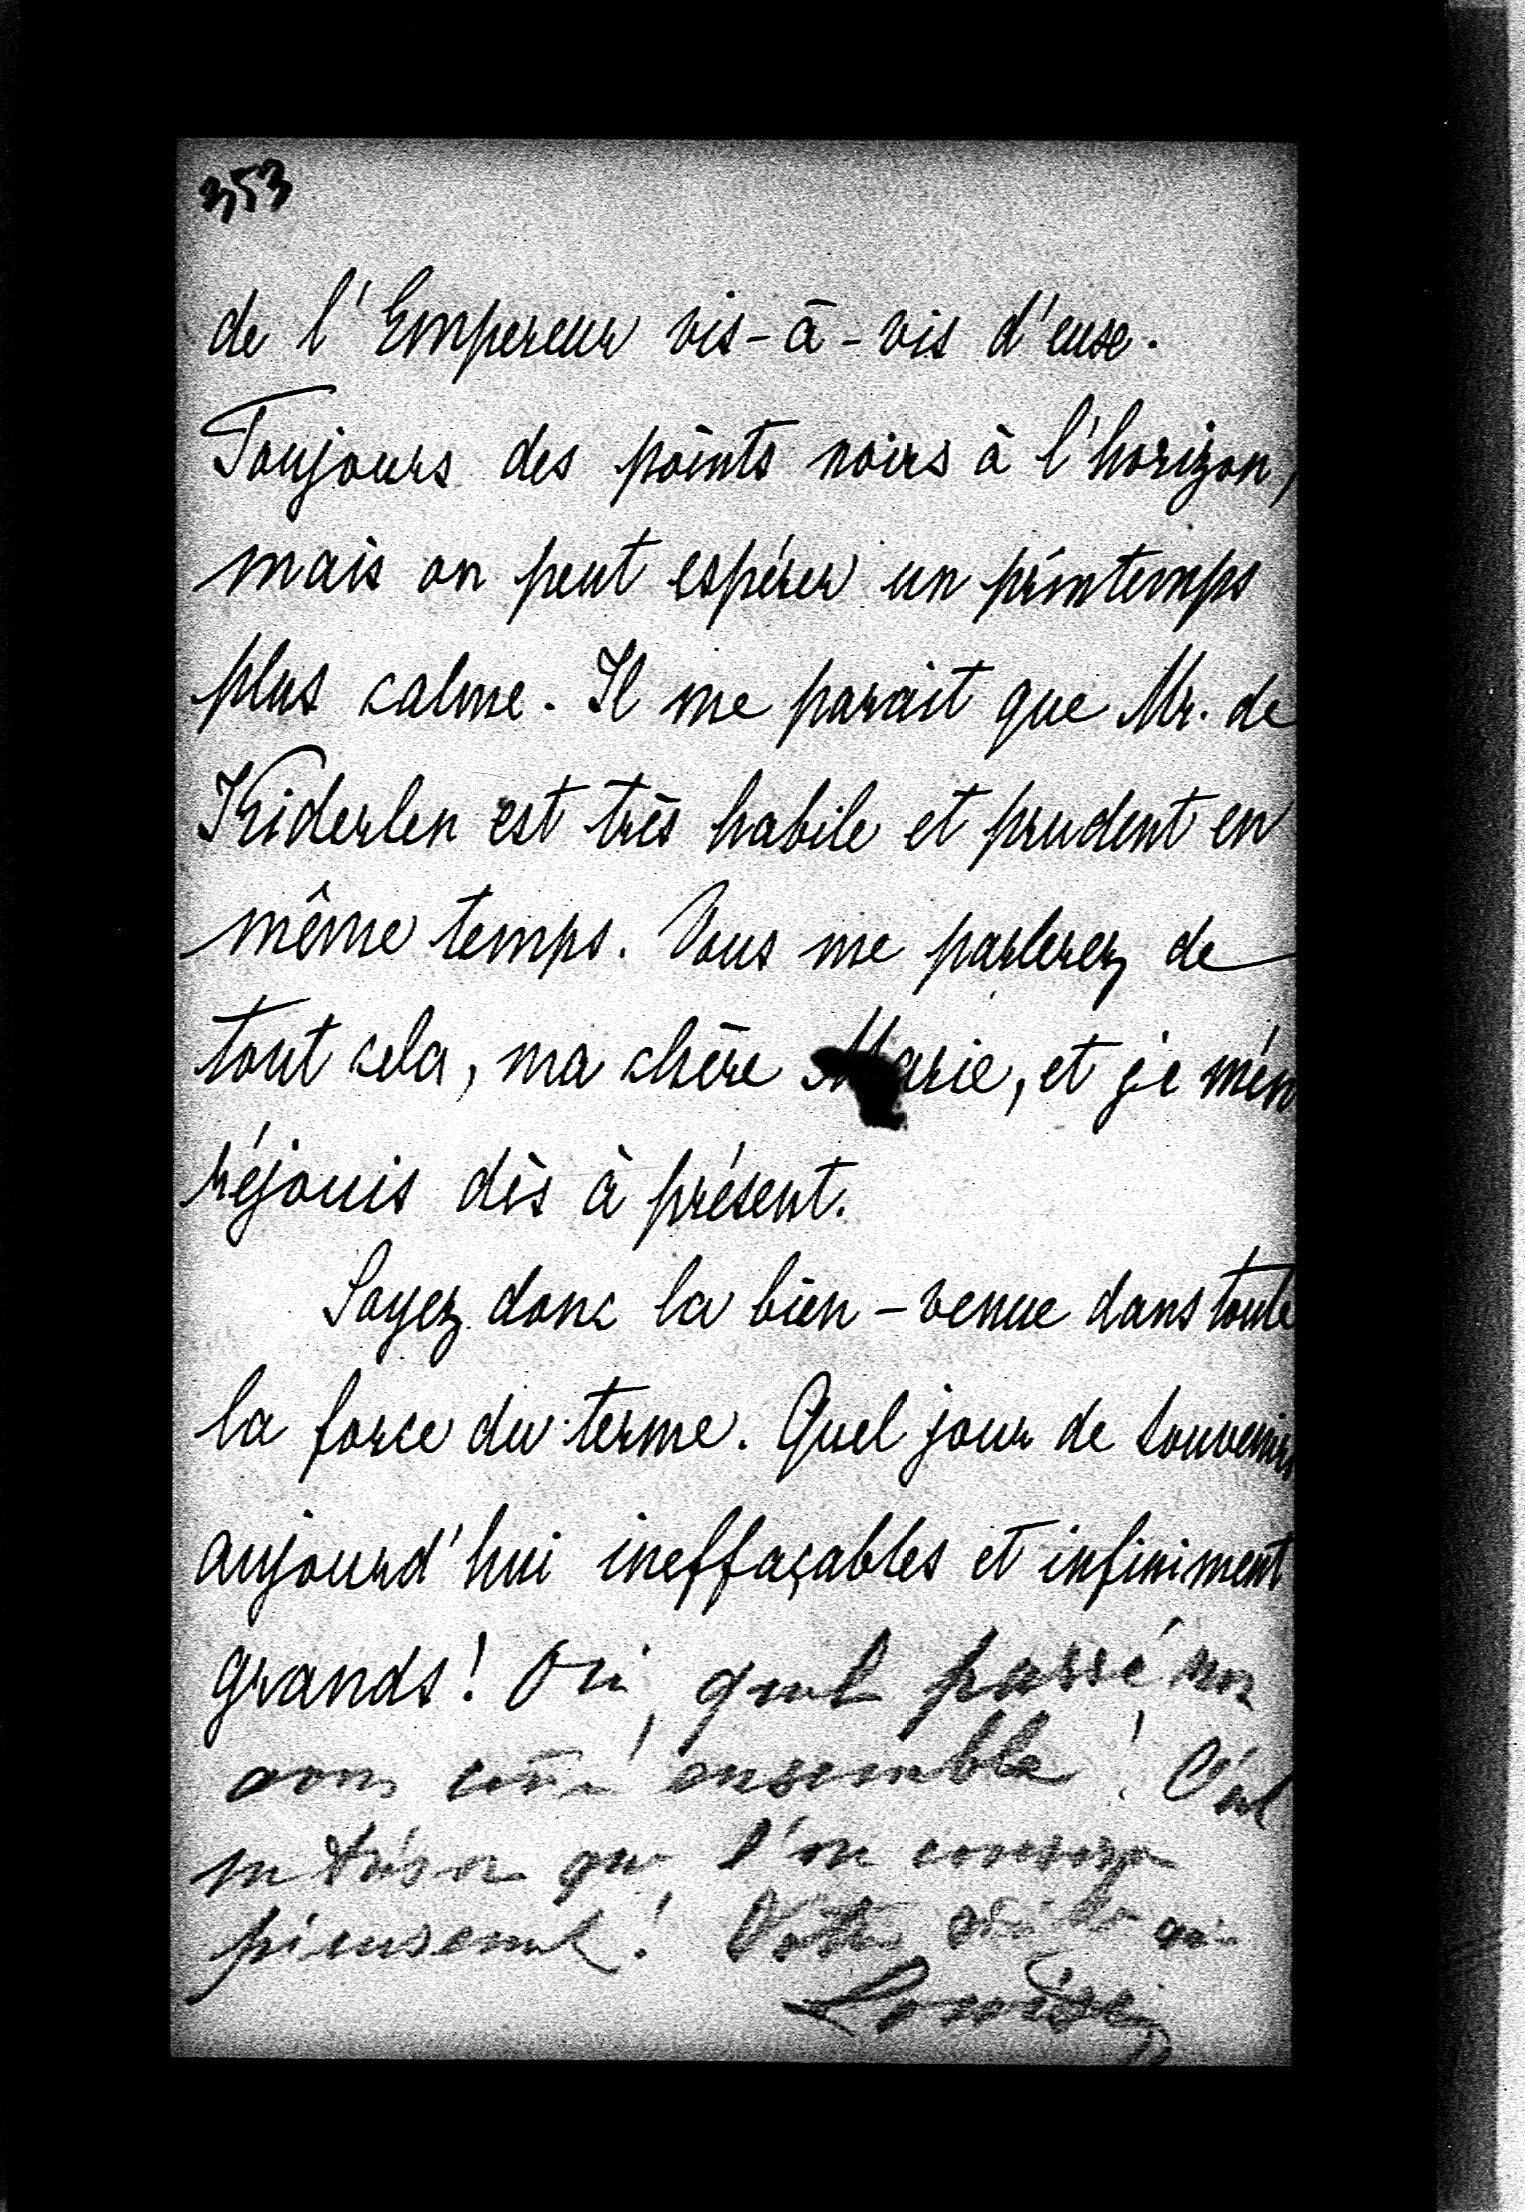 353
de l'Empereur vis-à-vis d'eux.
Toujours des points noirs à l'horizon,
mais on peut espérer un printemps
plus calme. Il me parait que Mr. de
Kiderlen est très habile et prudent en
même temps. Vous me parlerez de
tout cela, ma chère Marie, et je m'en
réjouis dès à présent.
Soyez donc la bien-venue dans toute
la force du terme. Quel jour de souvenirs
aujourd'hui ineffaçables et infiniment
grands! Oui, quel passé nous
avons ensemble! C'est
un trésor que l'on conserve
pieusement! Votre
Louise